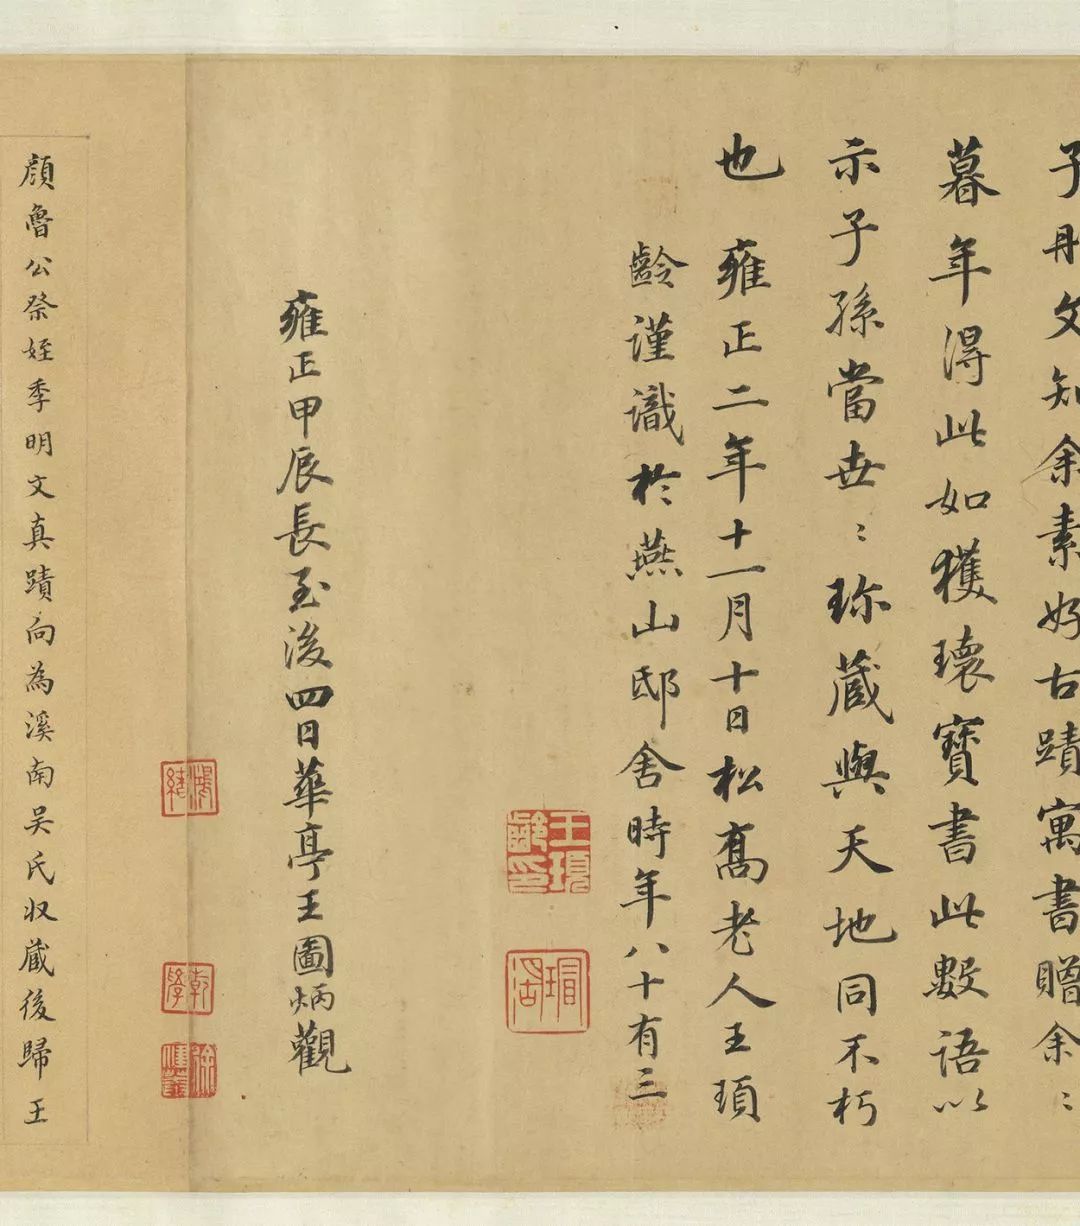 子彤文知余素好古蹟寓書贈余〻
暮年得此如獲瓌寶書此數語以
示子孫當世〻珎蔵與天地同不朽
也雍正二年十一月十日松髙老人王頊
齡謹識於燕山邸舍時年八十有三
王頊齡印
雍正甲辰長至後四日華亭王圖炳觀
顔魯公祭姪季明文真蹟向為溪南吴氏収蔵後歸王